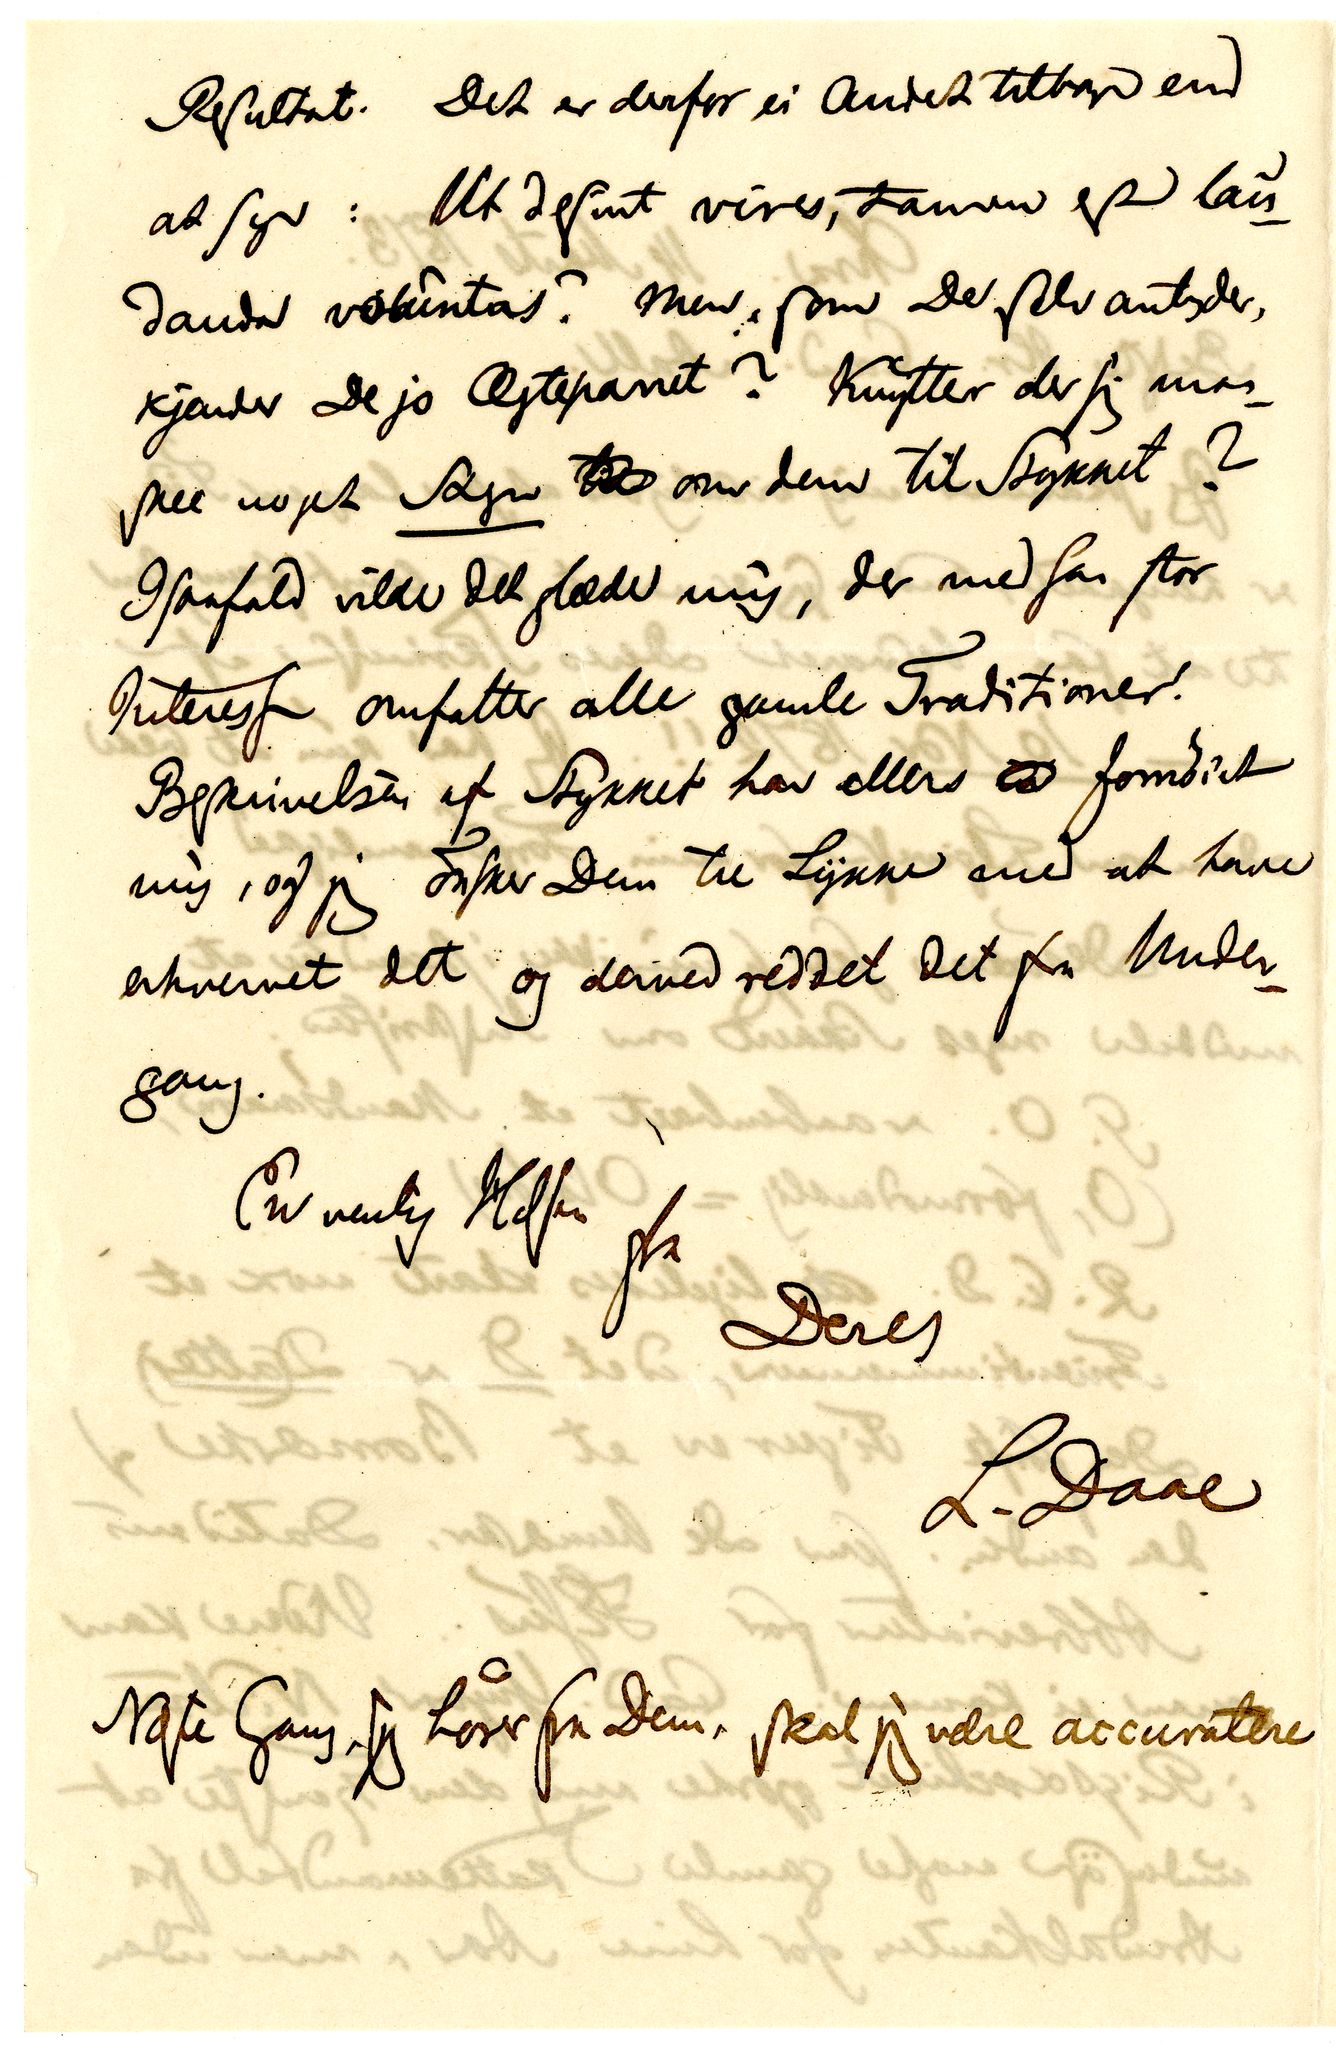 Resultat. Det er derfor ei Andet tilbage end
at sige: Ut desint vires, tamen est lau-
danda voluntas? Men, som De selv antyder,
kjender De jo Ægteparret? Knytter der sig maa-
skee noget Sagn om dem til Stykket?
Isaafald vilde det glæde mig, der med saa stor
Interesse omfatter alle gamle Traditioner.
Beskrivelsen af Stykket har ellers fornöiet
mig, og jeg önsker Dem til Lykke med at have
erhvervet det og derved reddet det fra Under-
gang.
En venlig Hilsen
fra
Deres
L. Daae
Næste Gang, jeg hører fra Dem, skal jeg være accuratere